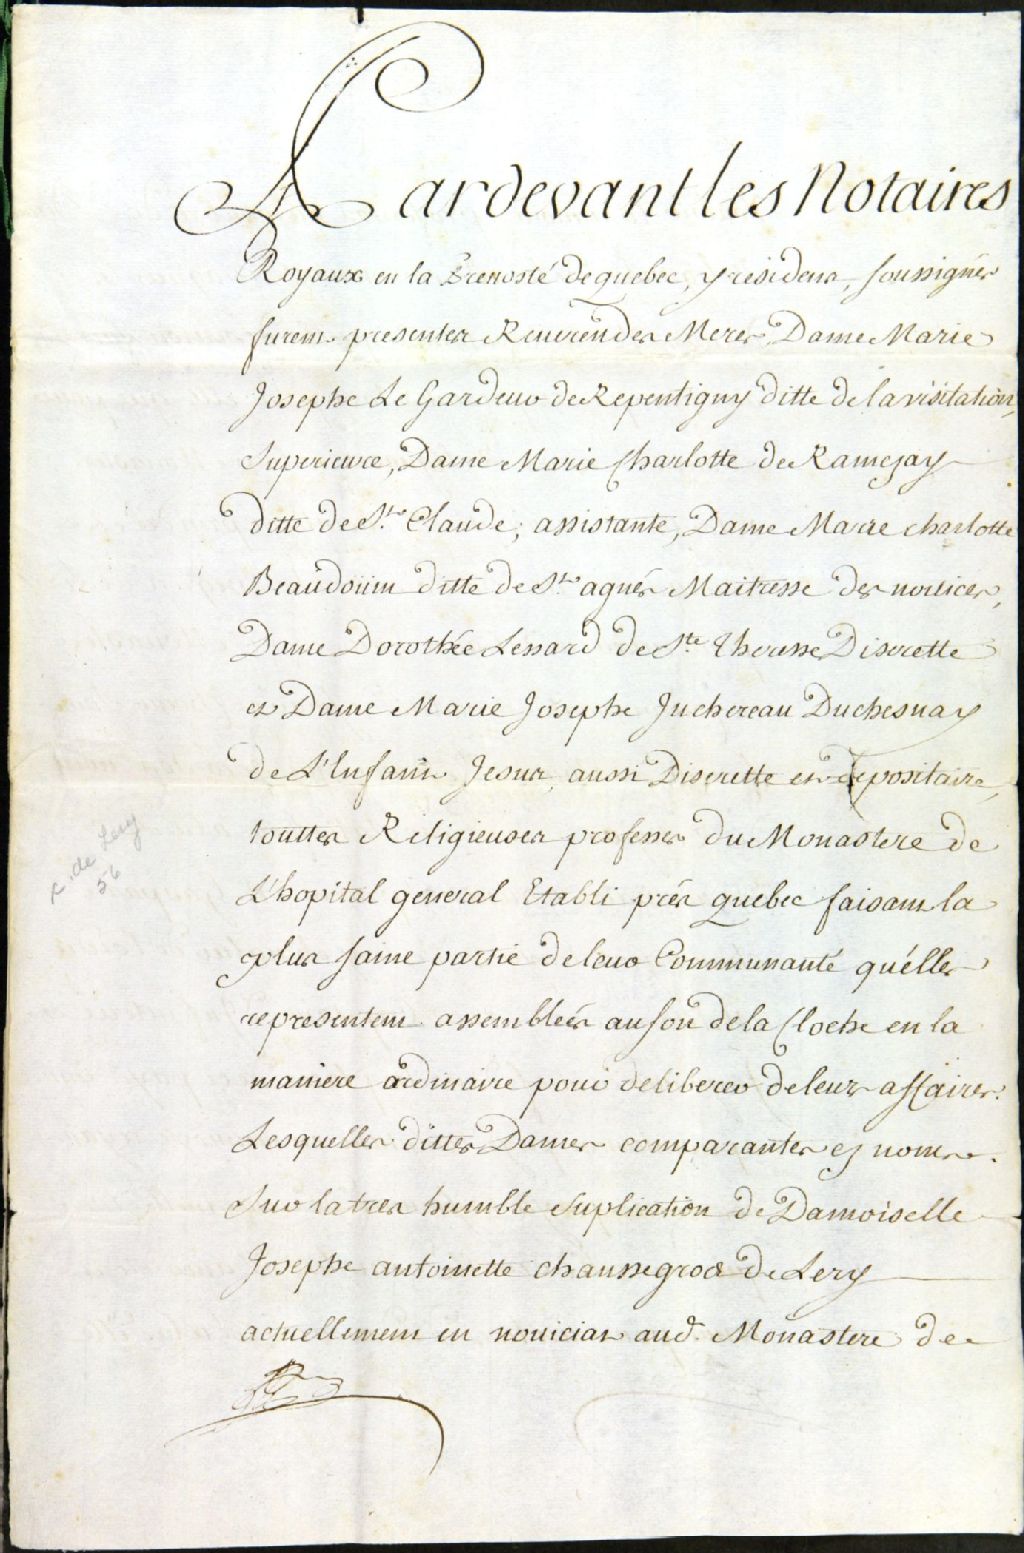 Pardevant les Notaires
Royaux en la Prevosté de quebec, y residens, soussignés
furent presentes Reverendes Meres, Dame Marie
Josephe Le Gardeur de Repentigny ditte de la visitation,
Superieure, Dame Marie Charlotte de Ramezay
ditte de Ste Claude, assistante, Dame Marie charlotte
Beaudoüin ditte de Ste agnés Maitresse des novices,
Dame Dorothée Lessard de Ste Therese, Discrette
et Dame Marie Josephe Juchereau Duchesnay
de L'Enfant Jesus, aussi Discrette et depositaire,
touttes Religieuses professes du Monastere de
L'hopital general Etabli prés quebec faisant la
plus saine partie de leur Communauté qu'elles
representent assemblées au son de la Cloche en la
maniere ordinaire pour deliberer de leurs affaires.
Lesquelles dittes Dames comparantes es noms.
Sur la tres humble suplication de Damoiselle
Josephe antoinette chaussegros de Lery
actuellement en noviciat aud. Monastere de
x. de Lery
56